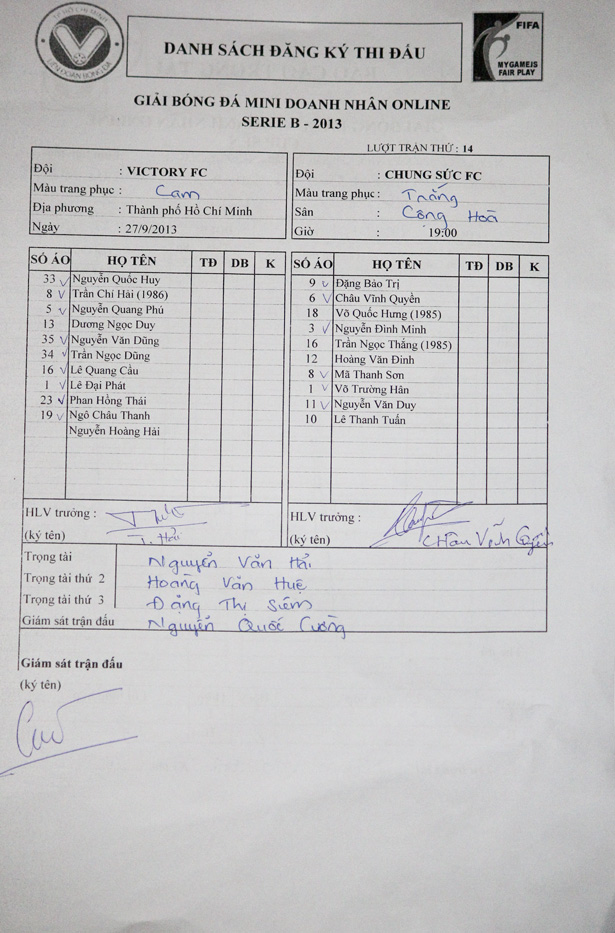 TP HỒ CHÍ MINH
LIÊN ĐOÀN BÓNG ĐÁ
DANH SÁCH ĐĂNG KÝ THI ĐẤU
FIFA
MY GAME IS
FAIR PLAY
GIẢI BÓNG ĐÁ MINI DOANH NHÂN ONLINE
SERIE B - 2013
LƯỢT TRẬN THỨ : 14
Đội : VICTORY FC
Màu trang phục : Cam
Địa phương : Thành phố Hồ Chí Minh
Ngày : 27/9/2013
Đội : CHUNG SỨC FC
Màu trang phục : Trắng
Sân : Cộng Hoà
Giờ : 19:00
SỐ ÁO HỌ TÊN TĐ DB K
33 ✓ Nguyễn Quốc Huy
8 ✓ Trần Chí Hải (1986)
5 ✓ Nguyễn Quang Phú
13 Dương Ngọc Duy
35 ✓ Nguyễn Văn Dũng
34 ✓ Trần Ngọc Dũng
16 ✓ Lê Quang Cầu
1 ✓ Lê Đại Phát
23 ✓ Phan Hồng Thái
19 ✓ Ngô Châu Thanh
Nguyễn Hoàng Hải
SỐ ÁO HỌ TÊN TĐ DB K
9 ✓ Đặng Bảo Trị
6 ✓ Châu Vĩnh Quyền
18 Võ Quốc Hưng (1985)
3 ✓ Nguyễn Đình Minh
16 Trần Ngọc Thắng (1985)
12 Hoàng Văn Đinh
8 ✓ Mã Thanh Sơn
1 ✓ Võ Trường Hân
11 ✓ Nguyễn Văn Duy
10 Lê Thanh Tuấn
HLV trưởng :
(ký tên) T. Hải
HLV trưởng :
(ký tên) Châu Vĩnh Quyền
Trọng tài Nguyễn Văn Hải
Trọng tài thứ 2 Hoàng Văn Huệ
Trọng tài thứ 3 Đặng Thị Siêm
Giám sát trận đấu Nguyễn Quốc Cường
Giám sát trận đấu
(ký tên)